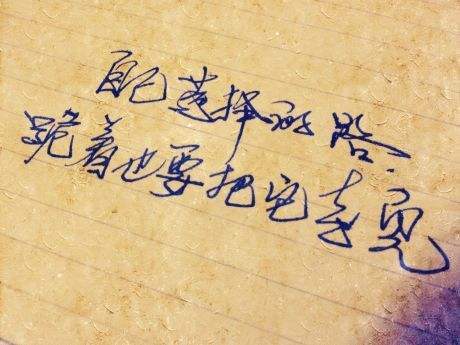 自己选择的路.
跪着也要把它走完